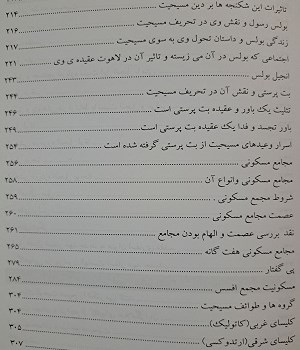 تاثیرات این شکنجه ها بر دین مسیحیت ... ۲۱۴
بولس رسول و نقش وی در تحریف مسیحیت ... ۲۱۶
زندگی بولس و داستان تحول وی به سوی مسیحیت ... ۲۱۷
اجتماعی که بولس در آن می زیسته و تاثیر آن در لاهوت عقیده ی وی ... ۲۲۱
انجیل بولس ... ۲۴۳
بت پرستی و نقش آن در تحریف مسیحیت ... ۲۴۴
تثلیث یک باور و عقیده بت پرستی است ... ۲۴۶
باور تجسد و فدا یک عقیده بت پرستی است ... ۲۴۹
اسرار وعیدهای مسیحیت از بت پرستی گرفته شده است ... ۲۵۴
مجامع مسکونی ... ۲۵۶
مجامع مسکونی وانواع آن ... ۲۵۸
شروط مجمع مسکونی ... ۲۵۹
عصمت مجامع مسکونی ... ۲۶۰
نقد بررسی عصمت و الهام بودن مجامع ... ۲۶۱
مجامع مسکونی هفت گانه ... ۲۶۵
پی گفتار ... ۲۷۹
مسکونیت مجمع افسس ... ۲۸۴
گروه ها و طوائف مسیحیت ... ۳۰۴
کلیسای غربی(کاتولیک) ... ۳۰۵
کلیسای شرقی(ارتدوکسی) ... ۳۰۷